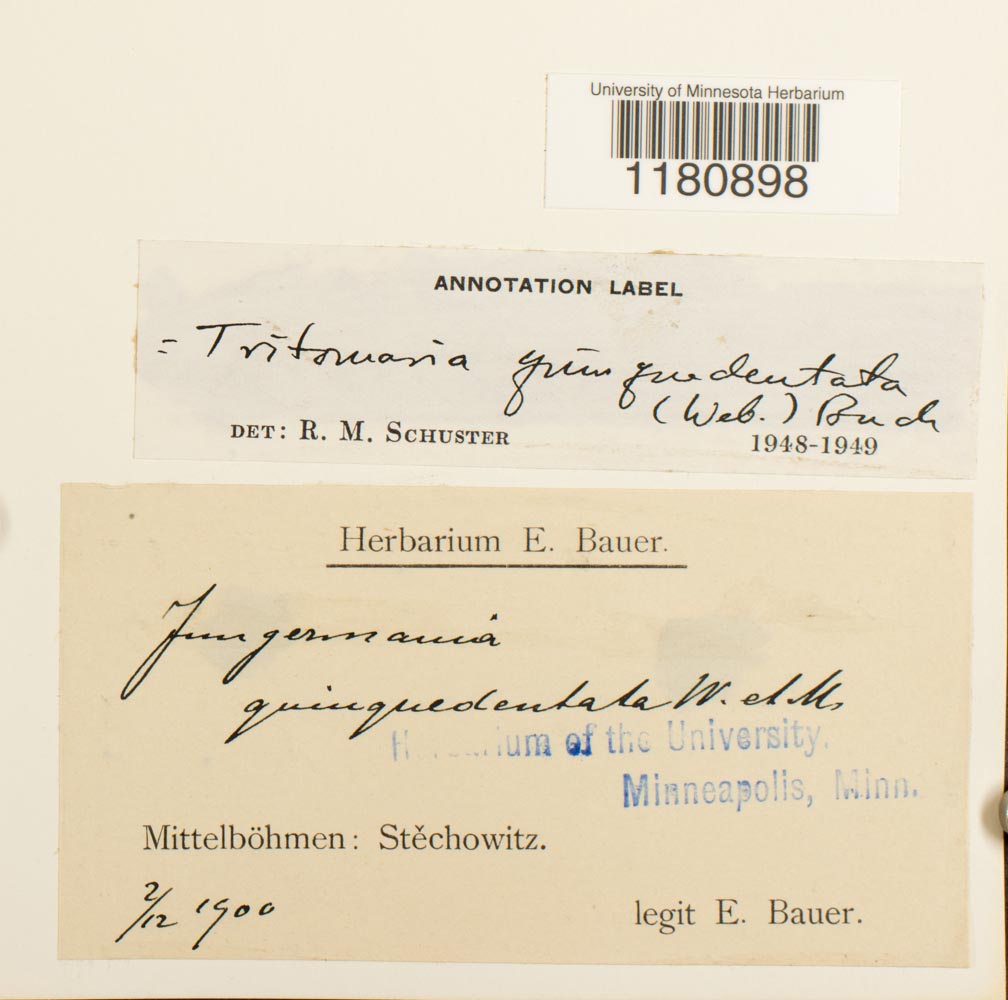 University of Minnesota Herbarium
1180898
ANNOTATION LABEL
= Tritomaria quinquedentata
(Web.) Buch
DET: R. M. SCHUSTER
1948-1949
Herbarium E. Bauer.
Jungermania
quinquedentata W. et M.
Herbarium of the University.
Minneapolis, Minn.
Mittelböhmen: Stěchowitz.
2/12 1900
legit E. Bauer.